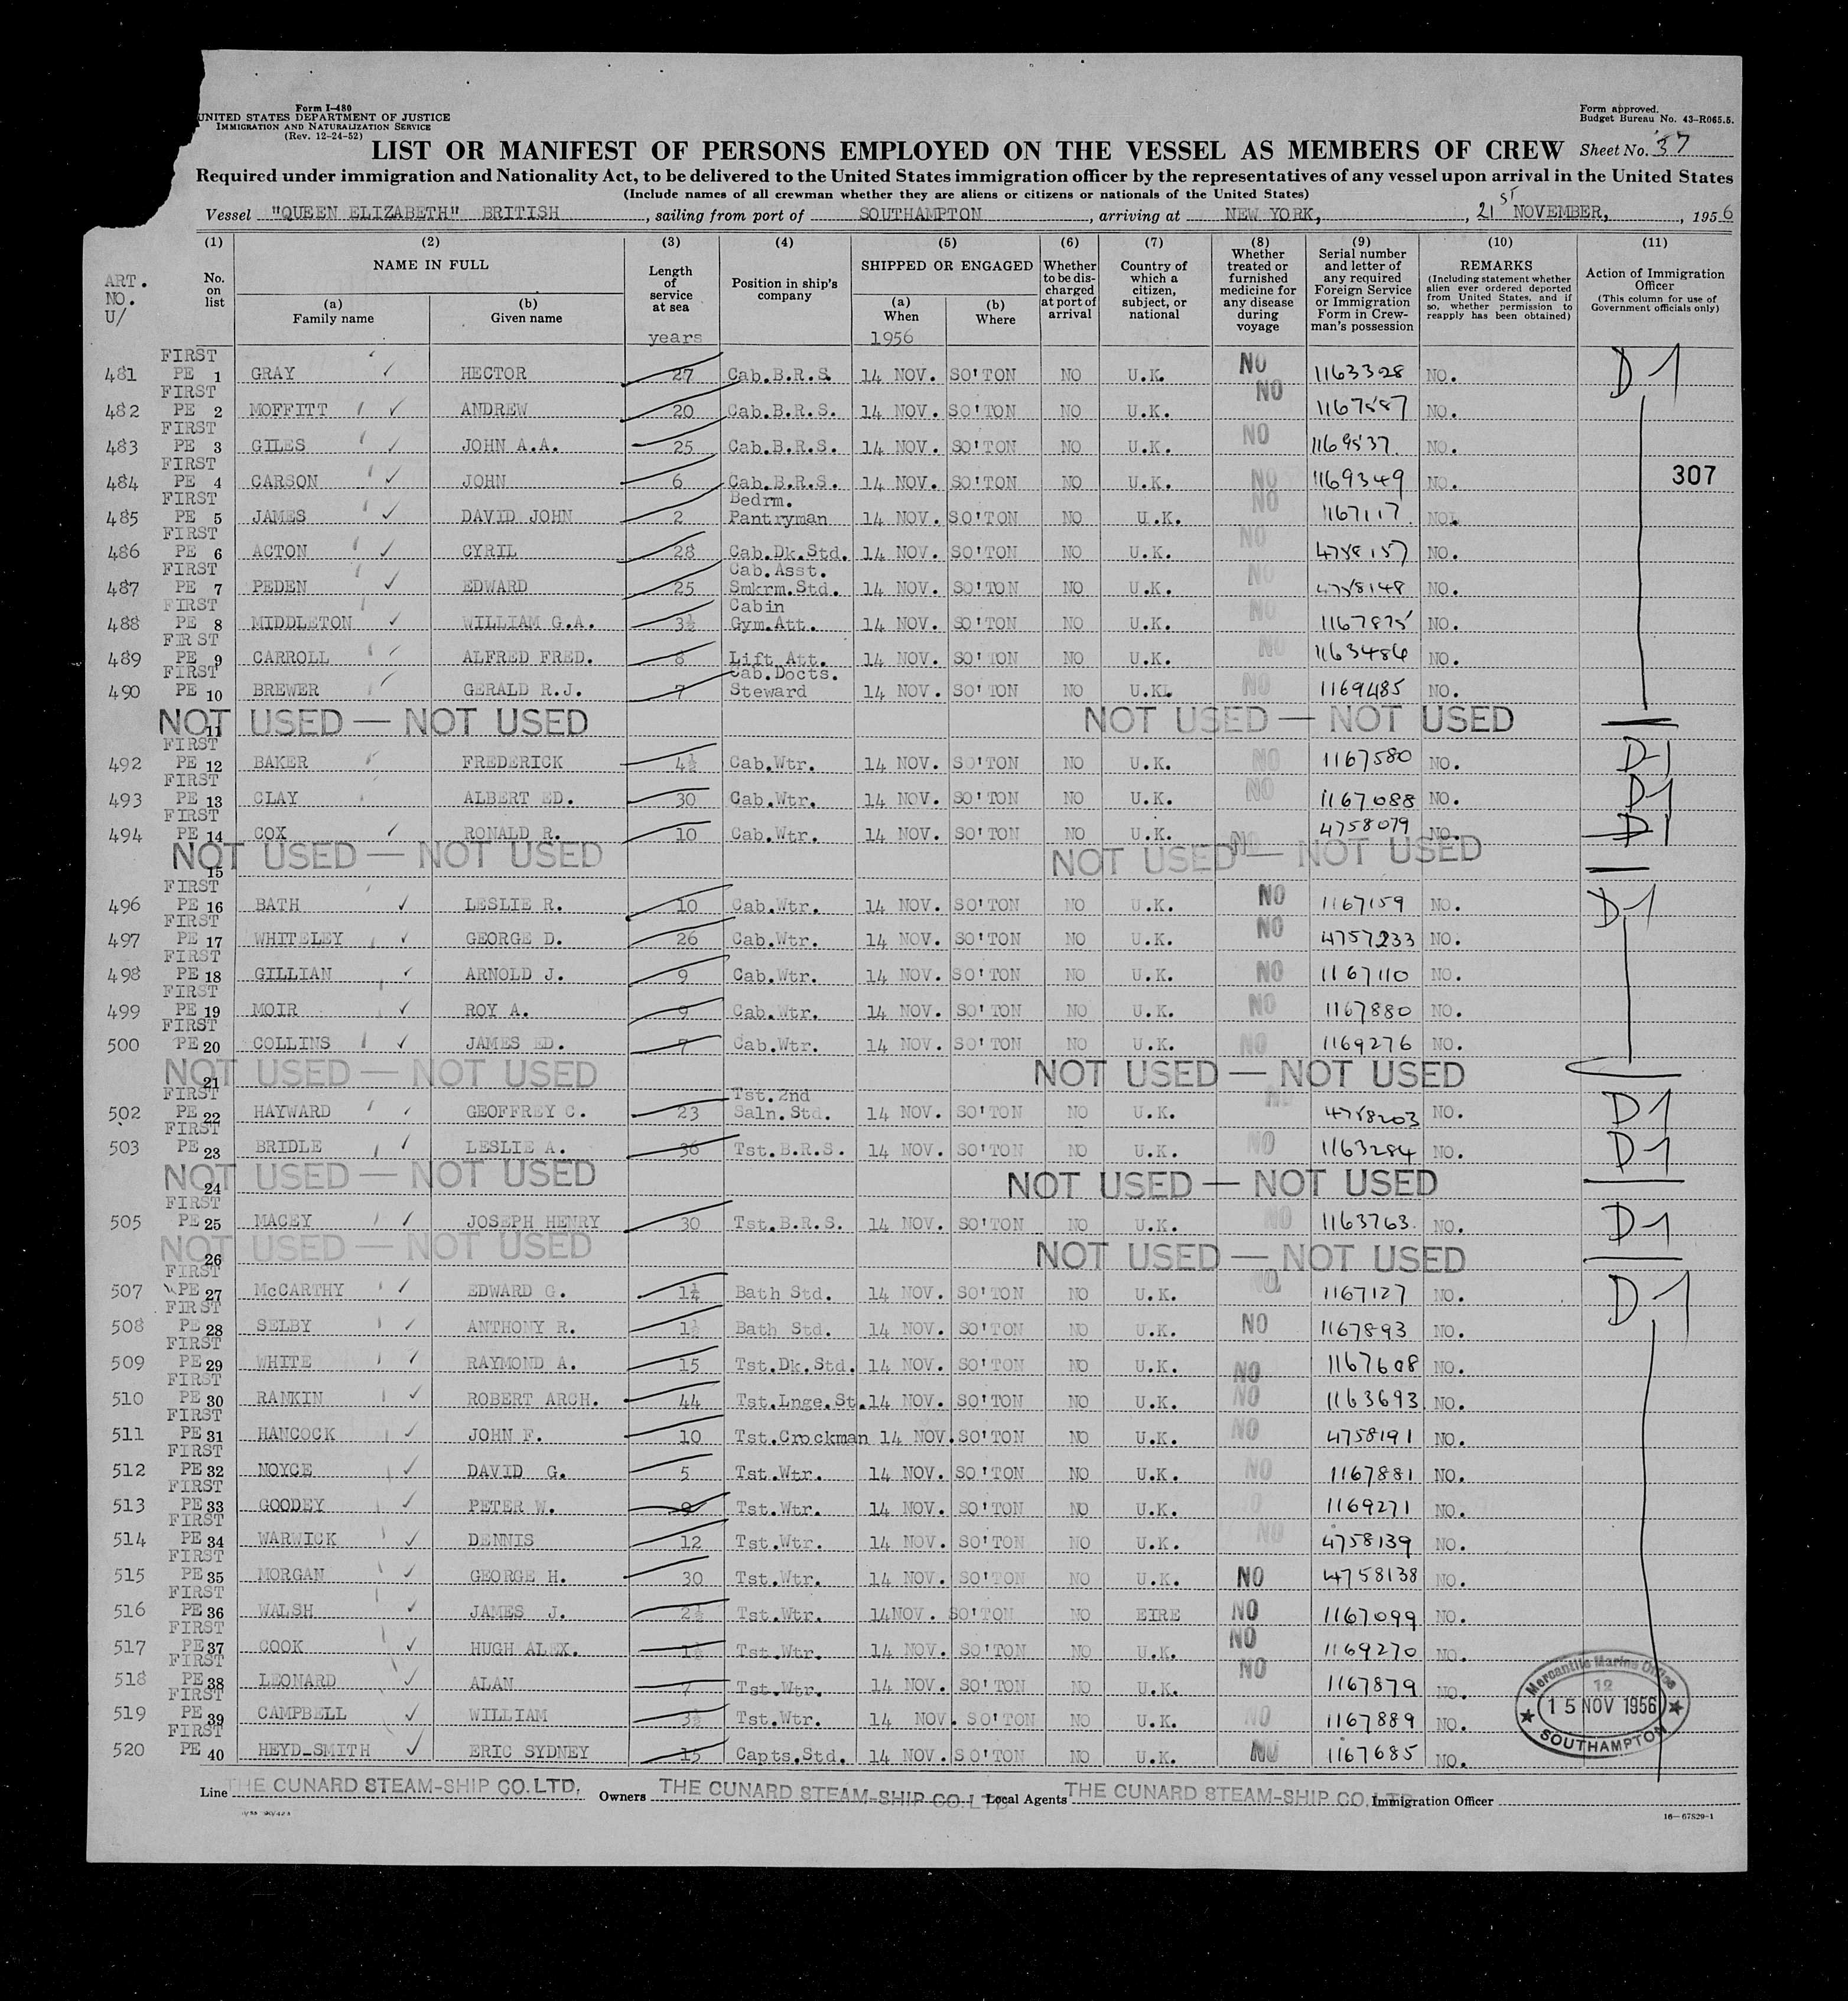 Form I-480
UNITED STATES DEPARTMENT OF JUSTICE
IMMIGRATION AND NATURALIZATION SERVICE
(Rev. 12-24-52)
Form approved.
Budget Bureau No. 43-R065.5.
LIST OR MANIFEST OF PERSONS EMPLOYED ON THE VESSEL AS MEMBERS OF CREW Sheet No. 37
Required under immigration and Nationality Act, to be delivered to the United States immigration officer by the representatives of any vessel upon arrival in the United States
(Include names of all crewman whether they are aliens or citizens or nationals of the United States)
Vessel "QUEEN ELIZABETH" BRITISH, sailing from port of SOUTHAMPTON, arriving at NEW YORK, 21ST NOVEMBER, 1956
(1) (2) (3) (4) (5) (6) (7) (8) (9) (10) (11)
ART. NO. U/
No. on list
NAME IN FULL
(a) Family name
(b) Given name
Length of service at sea
years
Position in ship's company
SHIPPED OR ENGAGED
(a) When
1956
(b) Where
Whether to be discharged at port of arrival
Country of which a citizen, subject, or national
Whether treated or furnished medicine for any disease during voyage
Serial number and letter of any required Foreign Service or Immigration Form in Crewman's possession
REMARKS
(Including statement whether alien ever ordered deported from United States, and if so, whether permission to reapply has been obtained)
Action of Immigration Officer
(This column for use of Government officials only)
481 FIRST PE 1 GRAY HECTOR 27 Cab.B.R.S. 14 NOV. SO'TON NO U.K. NO 1163328 NO. D1
482 FIRST PE 2 MOFFITT ANDREW 20 Cab.B.R.S. 14 NOV. SO'TON NO U.K. NO 1167887 NO.
483 FIRST PE 3 GILES JOHN A.A. 25 Cab.B.R.S. 14 NOV. SO'TON NO U.K. NO 1169537 NO.
484 FIRST PE 4 CARSON JOHN 6 Cab.B.R.S. 14 NOV. SO'TON NO U.K. NO 1169349 NO. 307
485 FIRST PE 5 JAMES DAVID JOHN 2 Bedrm. Pantryman 14 NOV. SO'TON NO U.K. NO 1167117 NO.
486 FIRST PE 6 ACTON CYRIL 28 Cab.Dk.Std. 14 NOV. SO'TON NO U.K. NO 4758157 NO.
487 FIRST PE 7 PEDEN EDWARD 25 Cab.Asst. Smkrm.Std. 14 NOV. SO'TON NO U.K. NO 4758148 NO.
488 FIRST PE 8 MIDDLETON WILLIAM G.A. 3½ Cabin Gym.Att. 14 NOV. SO'TON NO U.K. NO 1167875 NO.
489 FIRST PE 9 CARROLL ALFRED FRED. 8 Lift Att. 14 NOV. SO'TON NO U.K. NO 1163486 NO.
490 FIRST PE 10 BREWER GERALD R.J. 7 Cab.Docts. Steward 14 NOV. SO'TON NO U.K. NO 1169485 NO.
11 NOT USED — NOT USED NOT USED — NOT USED
492 FIRST PE 12 BAKER FREDERICK 4½ Cab.Wtr. 14 NOV. SO'TON NO U.K. NO 1167580 NO. D-1
493 FIRST PE 13 CLAY ALBERT ED. 30 Cab.Wtr. 14 NOV. SO'TON NO U.K. NO 1167088 NO. D1
494 FIRST PE 14 COX RONALD R. 10 Cab.Wtr. 14 NOV. SO'TON NO U.K. NO 4758079 NO. D1
15 NOT USED — NOT USED NOT USED — NOT USED
496 FIRST PE 16 BATH LESLIE R. 10 Cab.Wtr. 14 NOV. SO'TON NO U.K. NO 1167159 NO. D-1
497 FIRST PE 17 WHITELEY GEORGE D. 26 Cab.Wtr. 14 NOV. SO'TON NO U.K. NO 4757233 NO.
498 FIRST PE 18 GILLIAN ARNOLD J. 9 Cab.Wtr. 14 NOV. SO'TON NO U.K. NO 1167110 NO.
499 FIRST PE 19 MOIR ROY A. 9 Cab.Wtr. 14 NOV. SO'TON NO U.K. NO 1167880 NO.
500 FIRST PE 20 COLLINS JAMES ED. 7 Cab.Wtr. 14 NOV. SO'TON NO U.K. NO 1169276 NO.
21 NOT USED — NOT USED NOT USED — NOT USED
502 FIRST PE 22 HAYWARD GEOFFREY C. 23 Tst.2nd Saln.Std. 14 NOV. SO'TON NO U.K. NO 4758203 NO. D1
503 FIRST PE 23 BRIDLE LESLIE A. 36 Tst.B.R.S. 14 NOV. SO'TON NO U.K. NO 1163284 NO. D1
24 NOT USED — NOT USED NOT USED — NOT USED
505 FIRST PE 25 MACEY JOSEPH HENRY 30 Tst.B.R.S. 14 NOV. SO'TON NO U.K. NO 1163763 NO. D1
26 NOT USED — NOT USED NOT USED — NOT USED
507 FIRST PE 27 McCARTHY EDWARD G. 1¼ Bath Std. 14 NOV. SO'TON NO U.K. NO 1167127 NO. D-1
508 FIRST PE 28 SELBY ANTHONY R. 1½ Bath Std. 14 NOV. SO'TON NO U.K. NO 1167893 NO.
509 FIRST PE 29 WHITE RAYMOND A. 15 Tst.Dk.Std. 14 NOV. SO'TON NO U.K. NO 1167608 NO.
510 FIRST PE 30 RANKIN ROBERT ARCH. 44 Tst.Lnge.St. 14 NOV. SO'TON NO U.K. NO 1163693 NO.
511 FIRST PE 31 HANCOCK JOHN F. 10 Tst.Crockman 14 NOV. SO'TON NO U.K. NO 4758191 NO.
512 FIRST PE 32 NOYCE DAVID G. 5 Tst.Wtr. 14 NOV. SO'TON NO U.K. NO 1167881 NO.
513 FIRST PE 33 GOODEY PETER W. 9 Tst.Wtr. 14 NOV. SO'TON NO U.K. 1169271 NO.
514 FIRST PE 34 WARWICK DENNIS 12 Tst.Wtr. 14 NOV. SO'TON NO U.K. NO 4758139 NO.
515 FIRST PE 35 MORGAN GEORGE H. 30 Tst.Wtr. 14 NOV. SO'TON NO U.K. NO 4758138 NO.
516 FIRST PE 36 WALSH JAMES J. 2½ Tst.Wtr. 14NOV. SO'TON NO EIRE NO 1167099 NO.
517 FIRST PE 37 COOK HUGH ALEX. 1½ Tst.Wtr. 14 NOV. SO'TON NO U.K. NO 1169270 NO.
518 FIRST PE 38 LEONARD ALAN 7 Tst.Wtr. 14 NOV. SO'TON NO U.K. NO 1167879 NO.
519 FIRST PE 39 CAMPBELL WILLIAM 3½ Tst.Wtr. 14 NOV. SO'TON NO U.K. NO 1167889 NO.
520 FIRST PE 40 HEYD-SMITH ERIC SYDNEY 15 Capts.Std. 14 NOV. SO'TON NO U.K. NO 1167685 NO.
Mercantile Marine Office
12
15 NOV 1956
SOUTHAMPTON
Line THE CUNARD STEAM-SHIP CO. LTD. Owners THE CUNARD STEAM-SHIP CO. LTD Local Agents THE CUNARD STEAM-SHIP CO. LTD Immigration Officer
16—67829-1